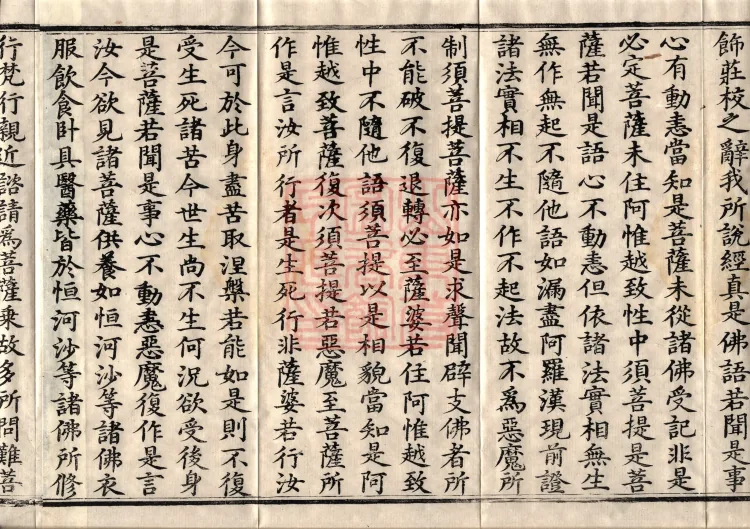 飾莊校之辭我所說經真是佛語若聞是事
心有動恚當知是菩薩未從諸佛受記非是
必定菩薩未住阿惟越致性中須菩提是菩
薩若聞是語心不動恚但依諸法實相無生
無作無起不隨他語如漏盡阿羅漢現前證
諸法實相不生不作不起法故不為惡魔所
制須菩提菩薩亦如是求聲聞辟支佛者所
不能破不復退轉必至薩婆若住阿惟越致
性中不隨他語須菩提以是相貌當知是阿
惟越致菩薩復次須菩提若惡魔至菩薩所
作是言汝所行者是生死行非薩婆若行汝
今可於此身盡苦取涅槃若能如是則不復
受生死諸苦今世生尚不生何況欲受後身
是菩薩若聞是事心不動恚惡魔復作是言
汝今欲見諸菩薩供養如恒河沙等諸佛衣
服飲食卧具醫藥皆於恒河沙等諸佛所修
行梵行親近諮請為菩薩乘故多所問難菩